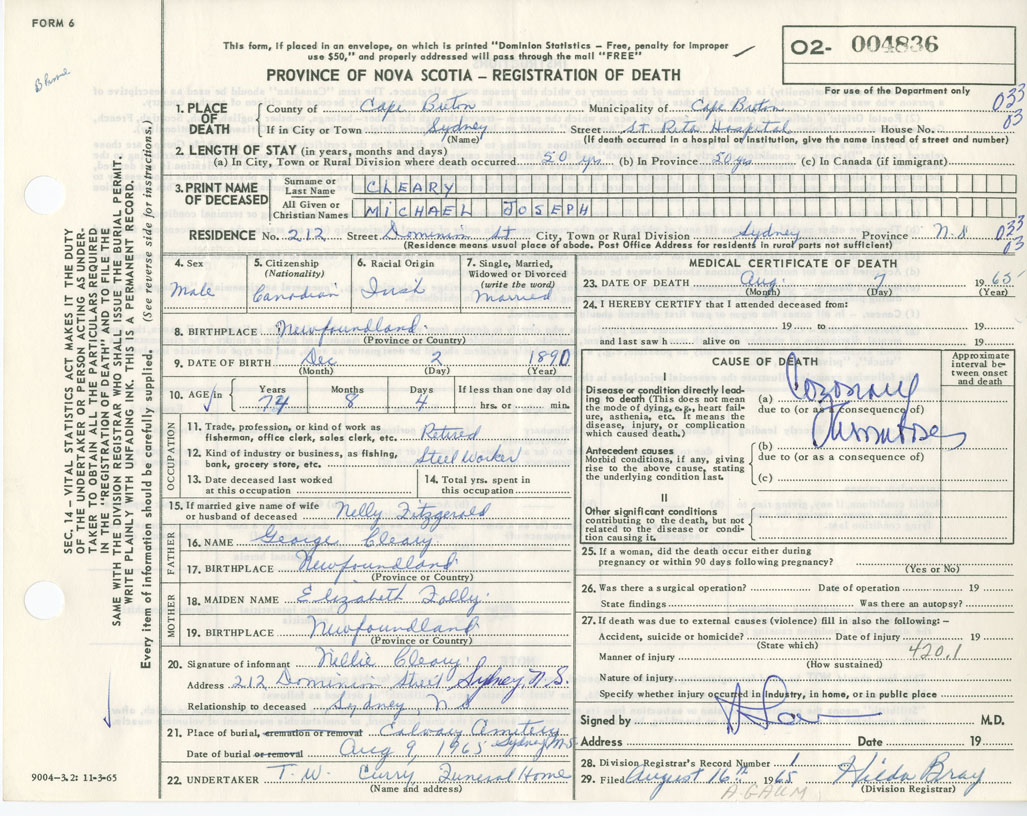 FORM 6
B Pound
This form, if placed in an envelope, on which is printed "Dominion Statistics - Free, penalty for improper
use $50," and properly addressed will pass through the mail "FREE"
O2- 004836
PROVINCE OF NOVA SCOTIA - REGISTRATION OF DEATH
For use of the Department only
1. PLACE OF DEATH County of Cape Breton Municipality of Cape Breton 033
If in City or Town Sydney Street St Rita Hospital House No. 03
(Name) (If death occurred in a hospital or institution, give the name instead of street and number)
2. LENGTH OF STAY (in years, months and days)
(a) In City, Town or Rural Division where death occurred 50 yrs (b) In Province 50 yrs (c) In Canada (if immigrant)
3. PRINT NAME OF DECEASED Surname or Last Name CLEARY
All Given or Christian Names MICHAEL JOSEPH
RESIDENCE No. 212 Street Dominion St City, Town or Rural Division Sydney Province N.S 033
03
(Residence means usual place of abode. Post Office Address for residents in rural parts not sufficient)
4. Sex Male
5. Citizenship (Nationality) Canadian
6. Racial Origin Irish
7. Single, Married, Widowed or Divorced (write the word) Married
8. BIRTHPLACE Newfoundland
(Province or Country)
9. DATE OF BIRTH Dec 2 1890
(Month) (Day) (Year)
10. AGE in Years Months Days If less than one day old
74 8 4 hrs. or min.
OCCUPATION
11. Trade, profession, or kind of work as
fisherman, office clerk, sales clerk, etc. Retired
12. Kind of industry or business, as fishing,
bank, grocery store, etc. Steel Worker
13. Date deceased last worked
at this occupation
14. Total yrs. spent in
this occupation
15. If married give name of wife
or husband of deceased Nelly Fitzgerald
FATHER
16. NAME George Cleary
17. BIRTHPLACE Newfoundland
(Province or Country)
MOTHER
18. MAIDEN NAME Elizabeth Folly
19. BIRTHPLACE Newfoundland
(Province or Country)
20. Signature of informant Nellie Cleary
Address 212 Dominion Street Sydney, N.S.
Relationship to deceased Sydney, N S
21. Place of burial, cremation or removal Calvary Cemetery
Sydney N S
Date of burial or removal Aug 9 1965
22. UNDERTAKER T. W. Curry Funeral Home
(Name and address)
MEDICAL CERTIFICATE OF DEATH
23. DATE OF DEATH Aug. 7 1965
(Month) (Day) (Year)
24. I HEREBY CERTIFY that I attended deceased from:
19 to 19
and last saw h alive on 19
CAUSE OF DEATH
Approximate
interval be-
tween onset
and death
I
Disease or condition directly lead-
ing to death (This does not mean
the mode of dying, e.g., heart fail-
ure, asthenia, etc. It means the
disease, injury, or complication
which caused death.)
(a) Coronary
due to (or as a consequence of)
Thrombosis
Antecedent causes
Morbid conditions, if any, giving
rise to the above cause, stating
the underlying condition last.
(b)
due to (or as a consequence of)
(c)
II
Other significant conditions
contributing to the death, but not
related to the disease or condi-
tion causing it.
25. If a woman, did the death occur either during
pregnancy or within 90 days following pregnancy?
(Yes or No)
26. Was there a surgical operation? Date of operation 19
State findings Was there an autopsy?
27. If death was due to external causes (violence) fill in also the following:-
Accident, suicide or homicide? Date of injury 19
(State which)
Manner of injury 420.1
(How sustained)
Nature of injury
Specify whether injury occurred in industry, in home, or in public place
Signed by M.D.
Address Date 19
28. Division Registrar's Record Number 1
29. Filed August 16th 1965 Hilda Bray
(Division Registrar)
A. GAUM
SEC. 14 - VITAL STATISTICS ACT MAKES IT THE DUTY
OF THE UNDERTAKER OR PERSON ACTING AS UNDER-
TAKER TO OBTAIN ALL THE PARTICULARS REQUIRED
IN THE "REGISTRATION OF DEATH" AND TO FILE THE
SAME WITH THE DIVISION REGISTRAR WHO SHALL ISSUE THE BURIAL PERMIT.
WRITE PLAINLY WITH UNFADING INK. THIS IS A PERMANENT RECORD.
Every item of information should be carefully supplied. (See reverse side for instructions.)
9004-3.2: 11-3-65